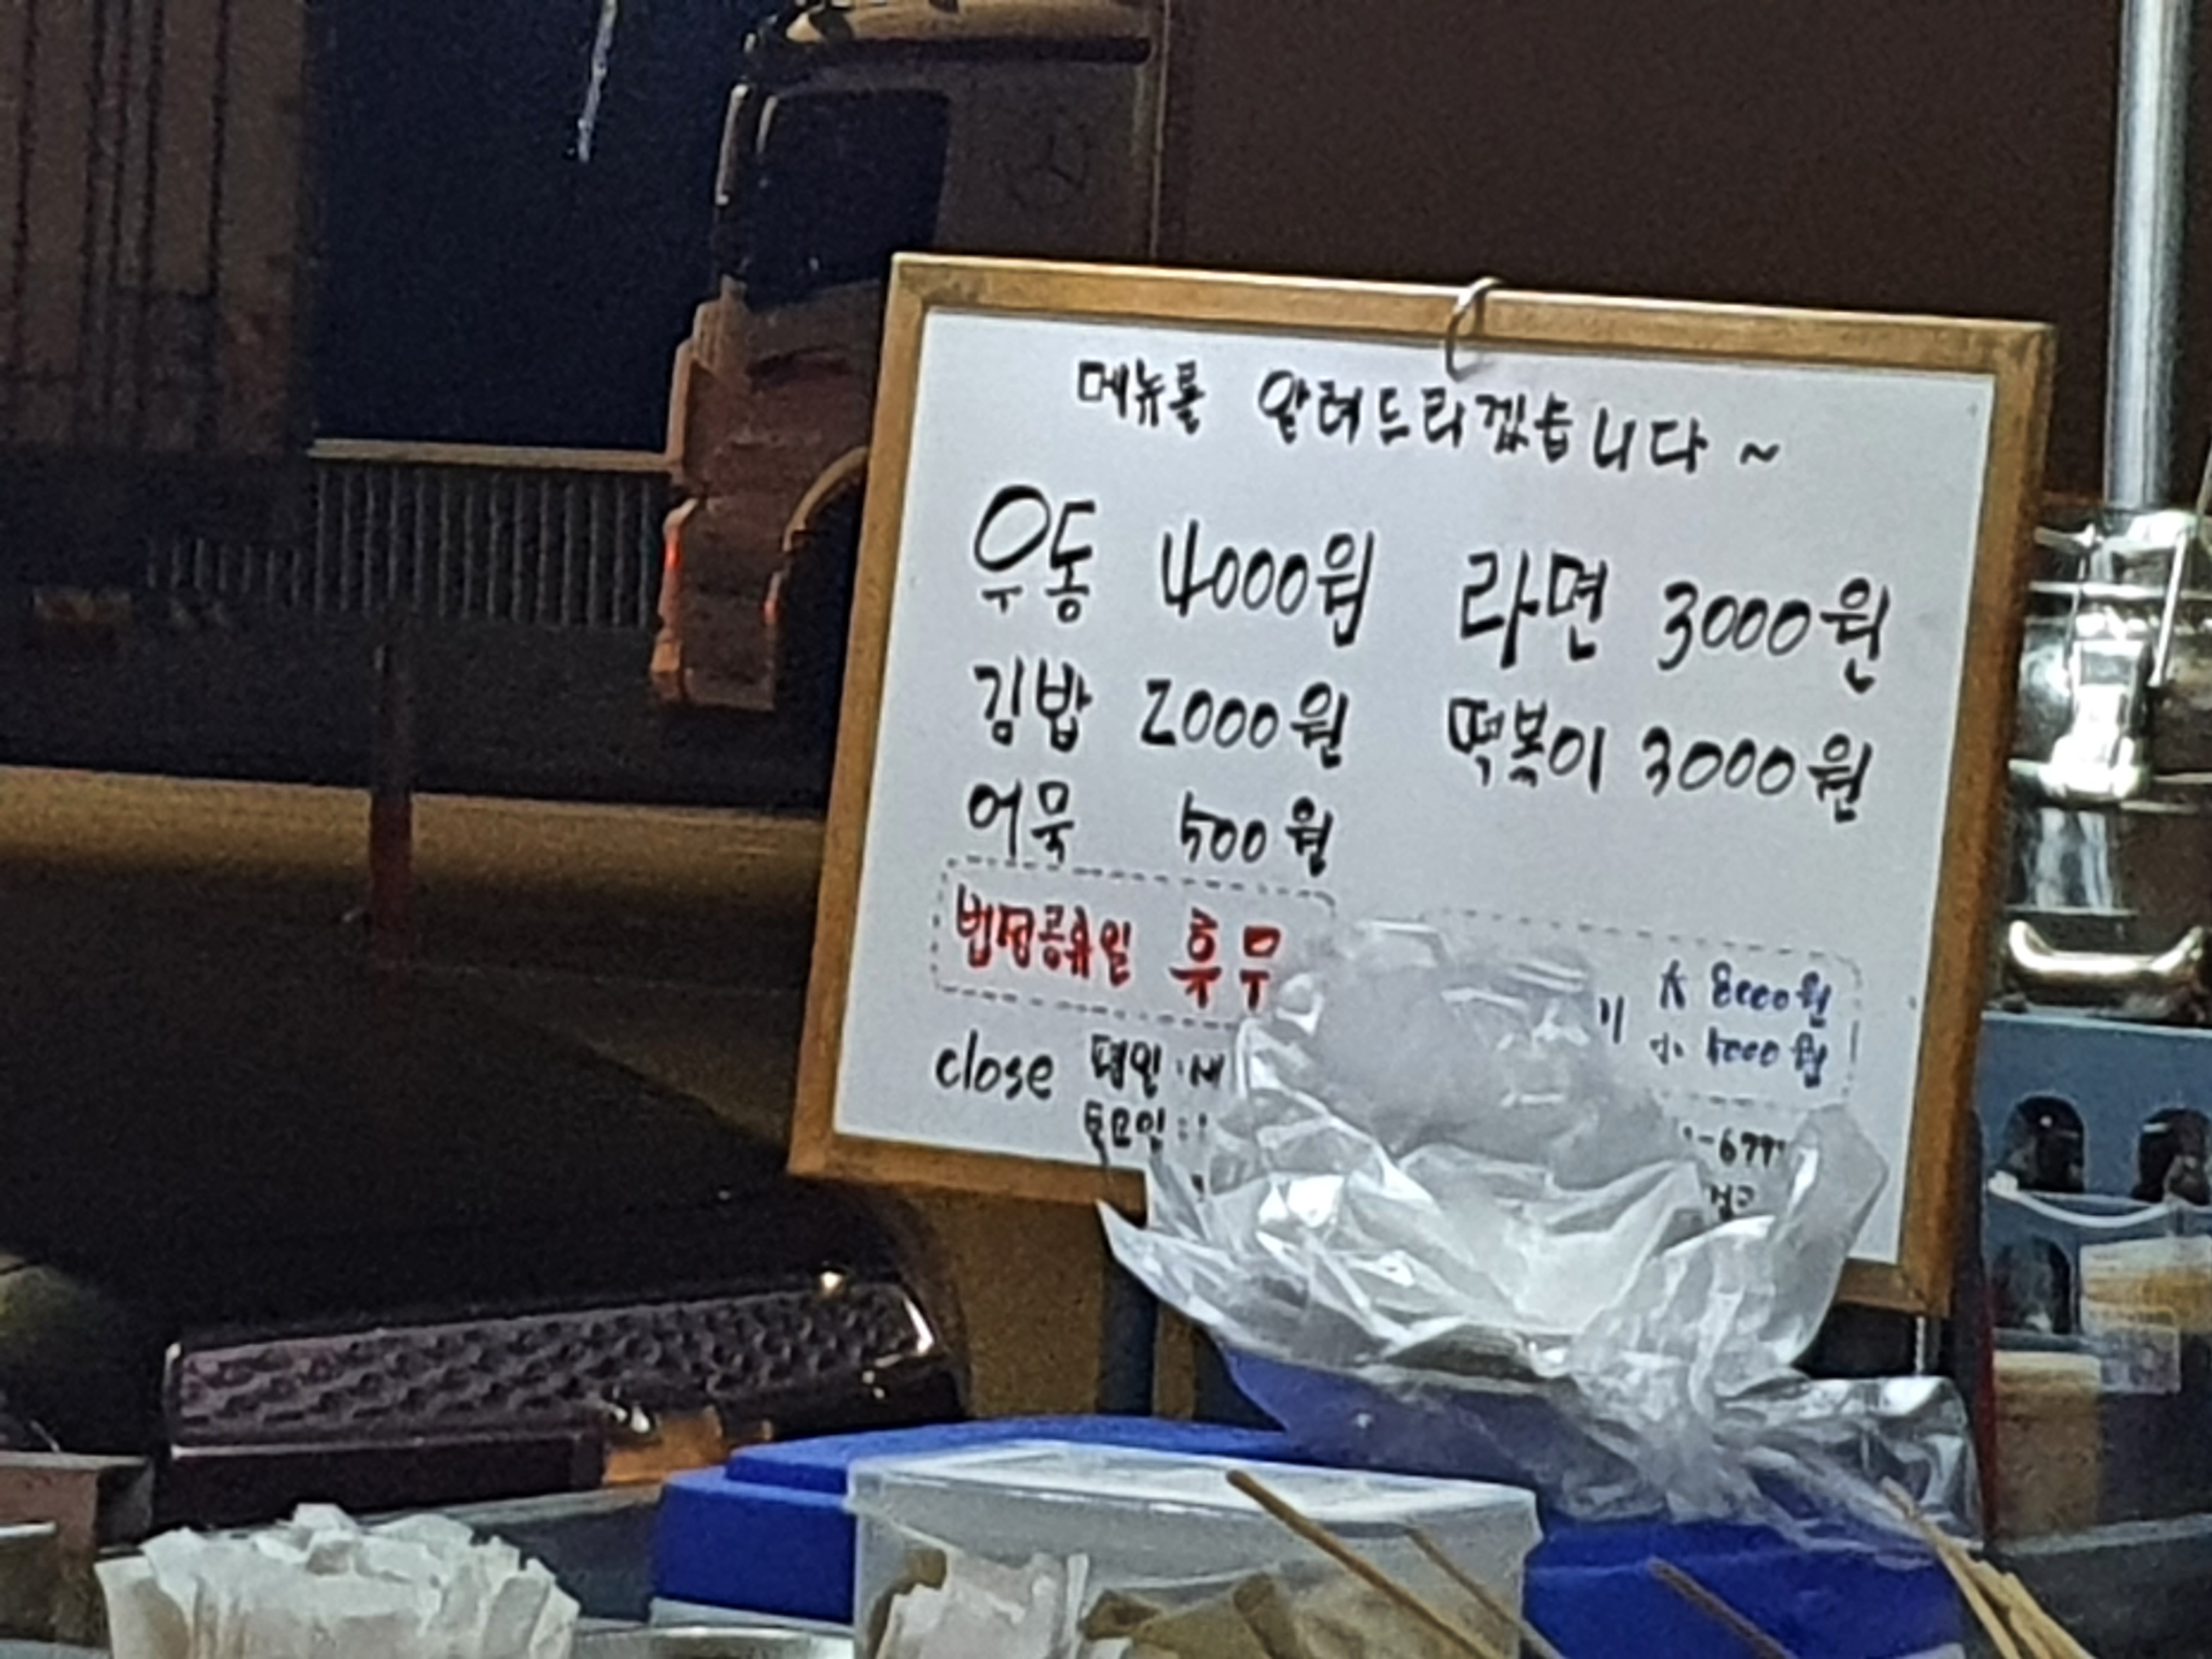 메뉴를 알려드리겠습니다 ~
우동 4000원 라면 3000원
김밥 2000원 떡볶이 3000원
어묵 500원
법정공휴일 휴무
大 8000원
小 4000원
close 평일 : 새
토요일 :